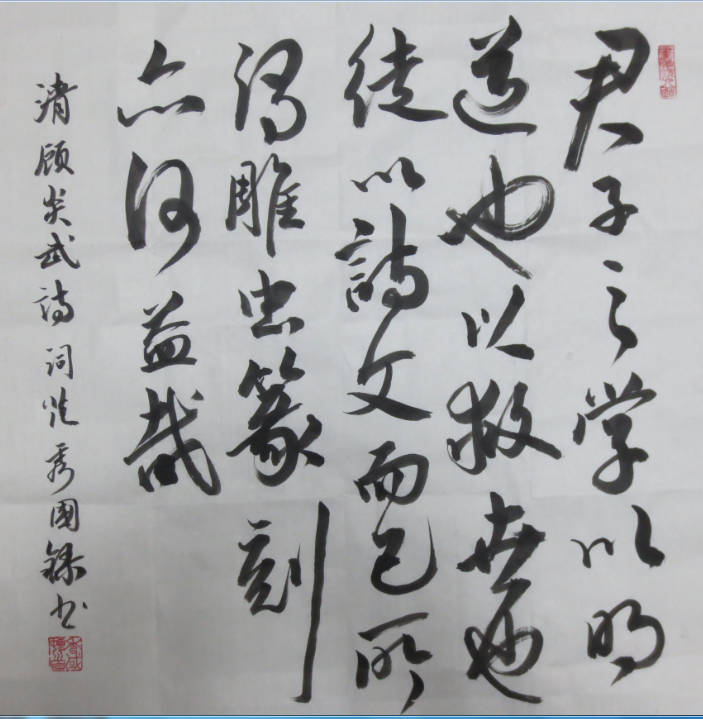 君子之学以明
道也以救世也
徒以詩文而已所
谓雕虫篆刻
亦何益哉
清顾炎武詩词秀國书